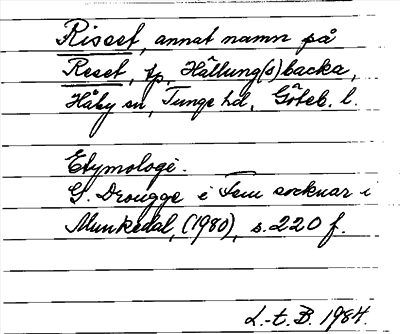 Risset, annat namn på
Reset, tp, Hällung(s)backa,
Håby sn, Tunge hd, Göteb. l.
Etymologi.
G. Drougge i Fem socknar i
Munkedal, (1980), s. 220 f.
L.-t. B. 1984.